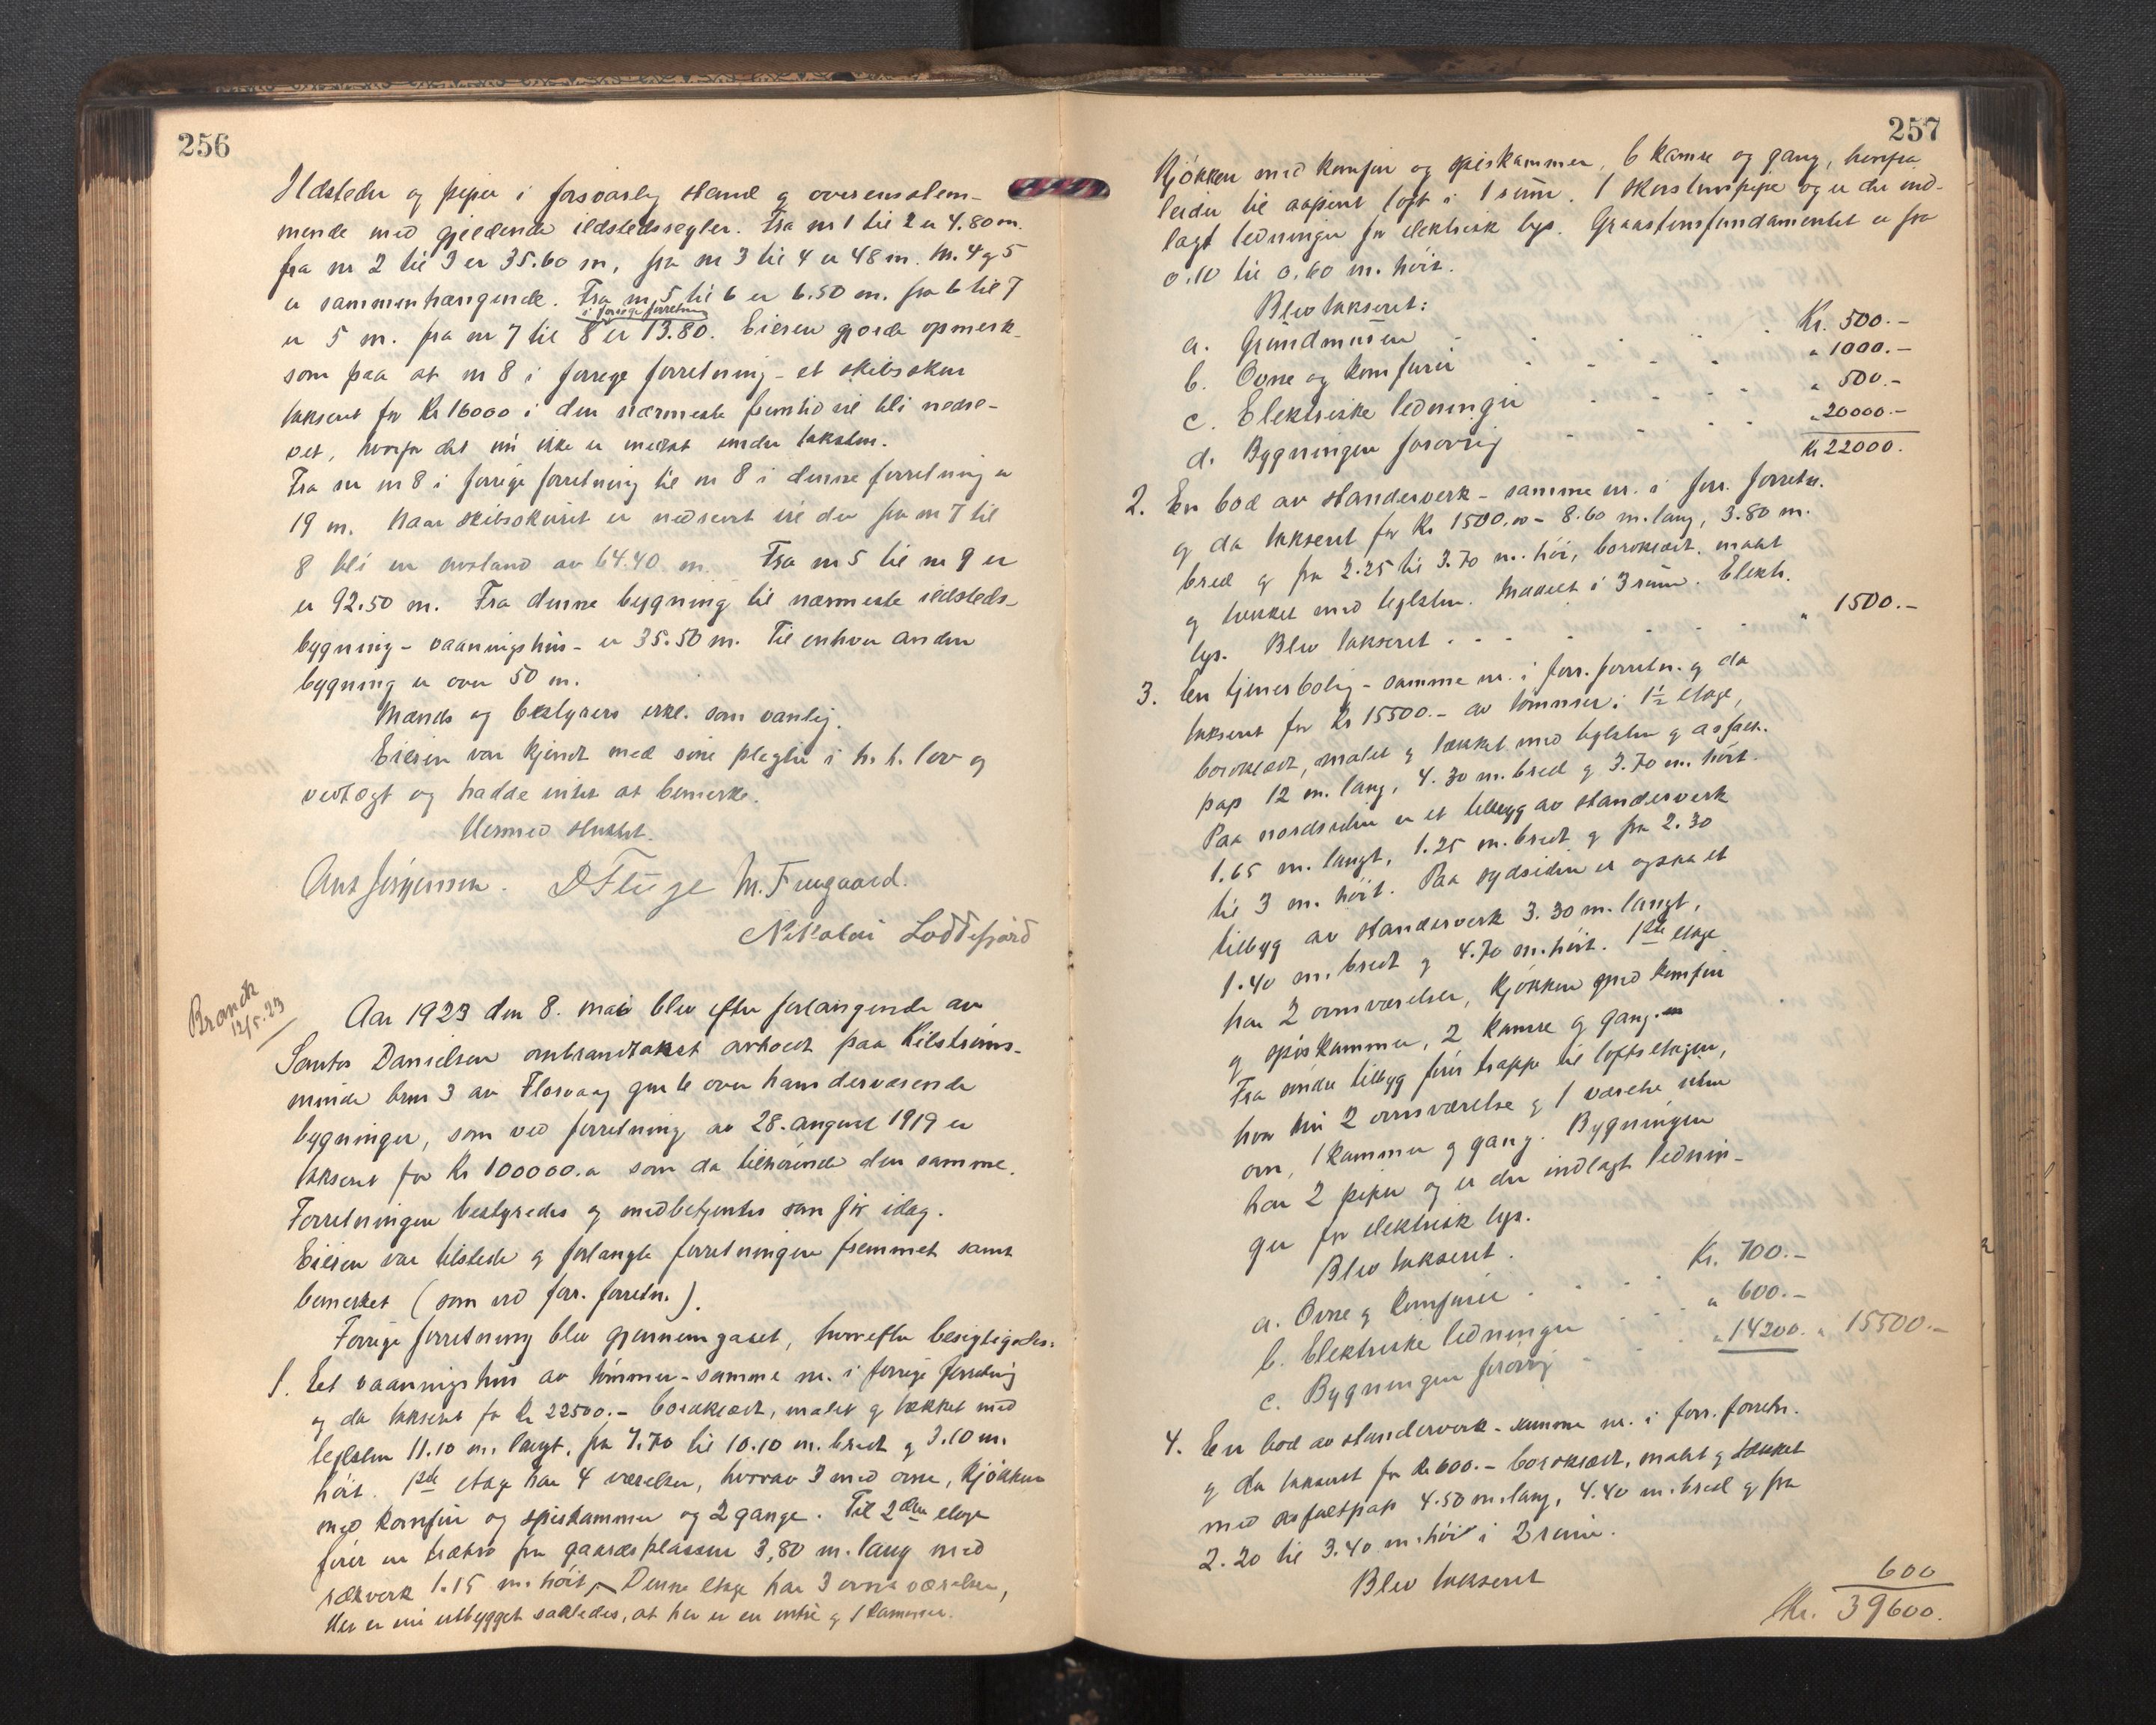 256
Ildsteder og piper i forsvarlig stand og overensstem-
mende med gjeldende ildstedsregler. Fra nr 1 til 2 er 4.80 m.
fra nr 2 til 3 er 35.60 m, fra nr 3 til 4 er 48 m. Nr. 4 og 5
er sammenhængende. Fra nr. 5 til 6 er 6.50 m. fra 6 til 7
i forrige forretning
er 5 m. fra nr 7 til 8 er 13.80. Eieren gjorde opmerk-
som paa at nr 8 i forrige forretning - et skibsskur
takseret for Kr 16000 i den nærmeste fremtid vil bli nedre-
vet, hvorfor det nu ikke er medtat under taksten.
Fra nr nr 8 i forrige forretning til nr 8 i denne forretning er
19 m. Naar skibsskuret er nedrevet vil der fra nr 7 til
8 bli en avstand av 64.40 m. Fra nr 5 til nr 9 er
er 92.50 m. Fra denne bygning til nærmeste ildsteds-
bygning - vaaningshus - er 35.50 m. Til enhver anden
bygning er over 50 m.
Mænds og bestyrers erkl. som vanlig.
Eieren var kjendt med sine plegter i h. h. lov og
vedtægt og hadde intet at bemerke.
Hermed sluttet.
Ant Jørgensen. D Fluge M. Fruugaard.
Nikolai Loddefjord
Brandk
12/5.23
Aar 1923 den 8. mai blev efter forlangende av
Santos Danielsen ombrandtakst avholdt paa Kilstrøms-
minde brnr 3 av Florvaag gnr 6 over hans derværende
bygninger, som ved forretning av 28. august 1919 er
takseret for Kr 100000.00 som da tilhørende den samme.
Forretningen bestyredes og medbetjentes som før idag.
Eieren var tilstede og forlangte forretningen fremmet samt
bemerket (som ved forr. forretn.).
Forrige forretning blev gjennemgaaet, hvorefter besigtigedes:
1. Eet vaaningshus av tømmer - samme nr. i forrige forretning
og da takseret for Kr 22500.- bordklædt, malet og tækket med
teglsten 11.10 m. langt, fra 7.70 til 10.10 m. bredt og 3.10 m.
høit. 1ste etage har 4 værelser, hvorav 3 med ovne, kjøkken
med komfur og spiskammer og 2 gange. Til 2den etage
fører en trætro fra gaardsplassen 3,80 m. lang med
rækverk 1.15 m. høit, Denne etage har 3 ovnsværelser,
Her er nu utbygget saaledes, at her er en entré og 1 kammer.
257
Kjøkken med komfur og spiskammer, 6 kamre og gang, herfra
leider til aapent loft i 1 rum. 1 skorstenspipe og er der ind-
lagt ledninger for elektrisk lys. Graastensfundamentet er fra
0.10 til 0.60 m. høit.
Blev takseret:
a. Grundmuren Kr. 500.-
b. Ovne og komfurer " 1000.-
c. Elektriske ledninger " 500.-
d. Bygningen forøvrig " 20000.-
Kr 22000.
2. En bod av standerverk - samme nr. i forr. forretn.
og da takseret for Kr 1500.00 - 8.60 m. lang, 3.80 m.
bred og fra 2.25 til 3.70 m. høi, bordklædt, malet
og tækket med teglsten. Indredet i 3 rum. Elektr.
lys. Blev takseret " 1500.-
3. En tjenerbolig - samme nr. i forr. forretn. og da
takseret for Kr 15500.- av tømmer i 1½ etage,
bordklædt, malet og tækket med teglsten og asfalt-
pap 12 m. lang, 4.30 m. bred og 3.70 m. høit.
Paa nordsiden er et tilbygg av standerverk
1.65 m. langt, 1.25 m. bredt og fra 2.30
til 3 m. høit. Paa sydsiden er ogsaa et
tilbyg av standerverk 3.30 m. langt,
1.40 m. bredt og 4.70 m. høit. 1ste etage
har 2 ovnsværelser, kjøkken med komfur
og spiskammer, 2 kamre og gang.
Fra søndre tilbyg fører trappe til loftsetagen,
hvor der 2 ovnsværelse og 1 værelse uten
ovn, 1 kammer og gang. Bygningen
har 2 piper og er der indlagt lednin-
ger for elektrisk lys.
Blev takseret.
a. Ovne og komfurer Kr. 700.-
b. Elektriske ledninger " 600.-
c. Bygningen forøvrig " 14200. " 15500.-
4. En bod av standerverk - samme nr. i forr. forretn.
og da takseret for Kr 600.- bordklædt, malet og tækket
med asfaltpap 4.50 m. lang, 4.40 m. bred og fra
2.20 til 3.40 m. høi i 2 rum.
Blev takseret 600
Kr. 39600.